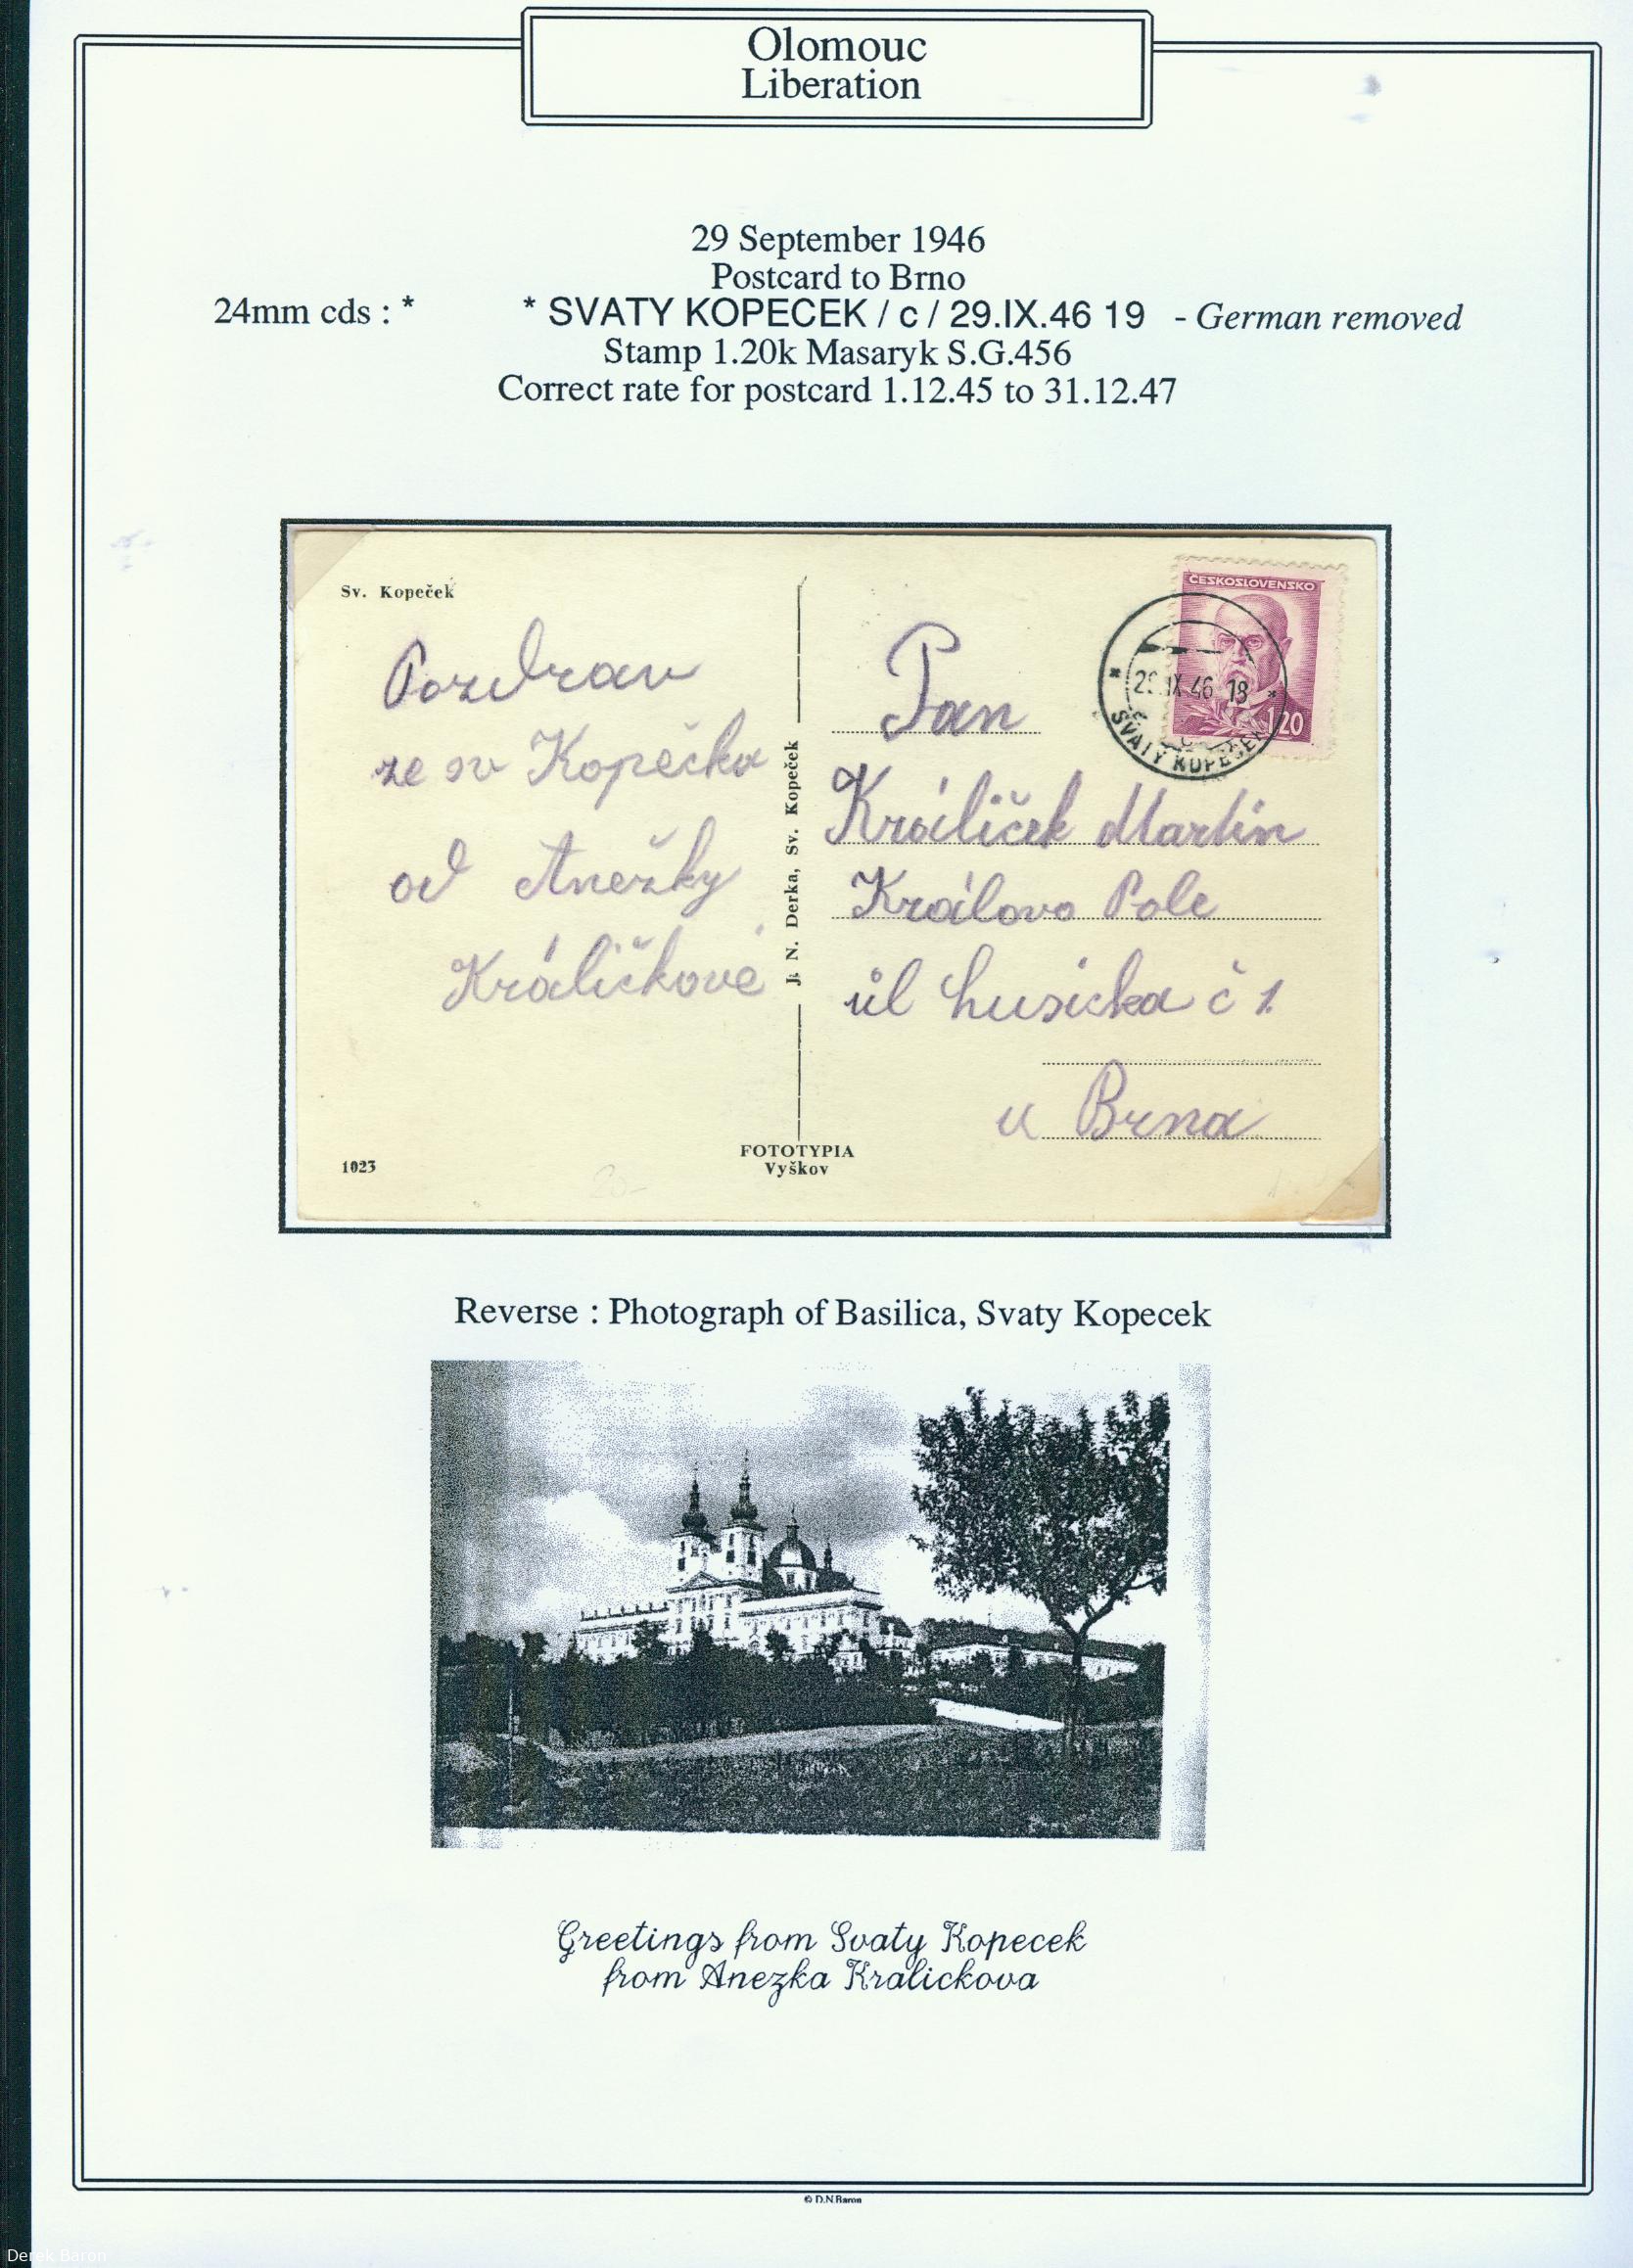 Olomouc
Liberation
29 September 1946
Postcard to Brno
24mm cds : * * SVATY KOPECEK / c / 29.IX.46 19 - German removed
Stamp 1.20k Masaryk S.G.456
Correct rate for postcard 1.12.45 to 31.12.47
Sv. Kopeček
Pozdrav
ze sv Kopečka
od Anežky
Králíčkové
J. N. Derka, Sv. Kopeček
FOTOTYPIA
Vyškov
1023
ČESKOSLOVENSKO
120
29.IX.46 18
SVATÝ KOPEČEK
c
Pan
Králíček Martin
Královo Pole
ůl husicka č 1.
u Brna
Reverse : Photograph of Basilica, Svaty Kopecek
Greetings from Svaty Kopecek
from Anezka Kralickova
© D.N.Baron
Derek Baron